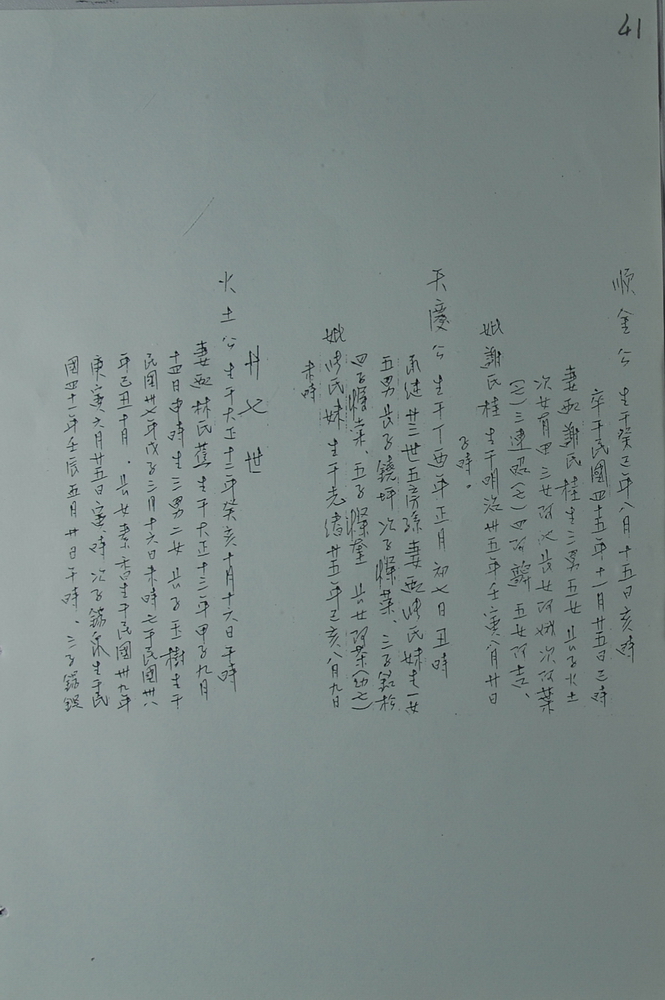 41
順金公 生于癸巳年八月十五日亥時
卒于民國四十五年十一月廿五日巳時
妻配謝氏桂生三男五女 長子火土
次 三 長女阿娥次阿葉
(亡)三連照(亡)四阿 五女阿吉、
妣謝氏桂 生于明治卅五年壬寅八月廿日
子時。
天慶公 生于丁酉年正月初七日丑時
承徒廿三世五房孫 妻配 氏妹生一女
五男 長子鐃坪 次子 業、三子銘
四子 榮、五子 奎 長女阿茶(幼亡)
妣 氏妹 生于光緒廿五年己亥八月九日
未時
廿七世
火土公 生于大正十二年癸亥十月十六日午時
妻配林氏蕉 生于大正十三年甲子九月
十四日申時 生三男二女 長子玉樹 生于
民國卅七年戊子三月十六日未時 亡于民國卅八
年己丑十月。長女素香 生于民國卅九年
庚寅六月廿五日寅時 次子錦永 生于民
國四十一年壬辰五月廿日午時、三子錦